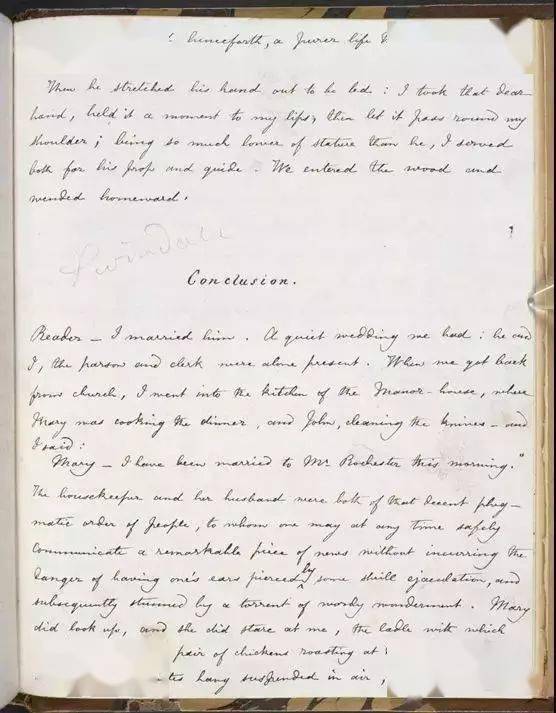 henceforth, a purer life
Then he stretched his hand out to be led : I took that dear
hand, held it a moment to my lips, then let it pass round my
shoulder ; being so much lower of stature than he, I served
both for his prop and guide . We entered the wood and
wended homeward .
Conclusion.
Reader — I married him . A quiet wedding we had : he and
I, the parson and clerk were alone present . When we got back
from church, I went into the kitchen of the Manor-house, where
Mary was cooking the dinner, and John, cleaning the knives — and
I said :
Mary — I have been married to Mr Rochester this morning."
The housekeeper and her husband were both of that decent phleg-
matic order of people, to whom one may at any time safely
communicate a remarkable piece of news without incurring the
danger of having one's ears pierced by some shrill ejaculation, and
subsequently stunned by a torrent of wordy wonderment . Mary
did look up, and she did stare at me, the ladle with which
pair of chickens roasting at
hang suspended in air ,